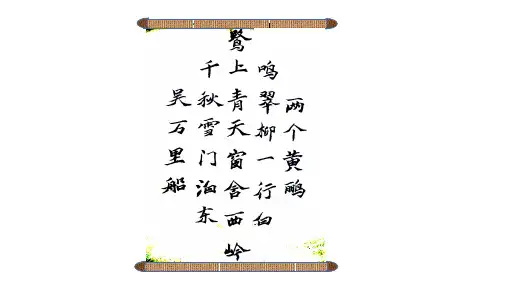 两个黄鹂
鸣翠柳一行白
鹭上青天窗含西岭
千秋雪门泊东
吴万里船